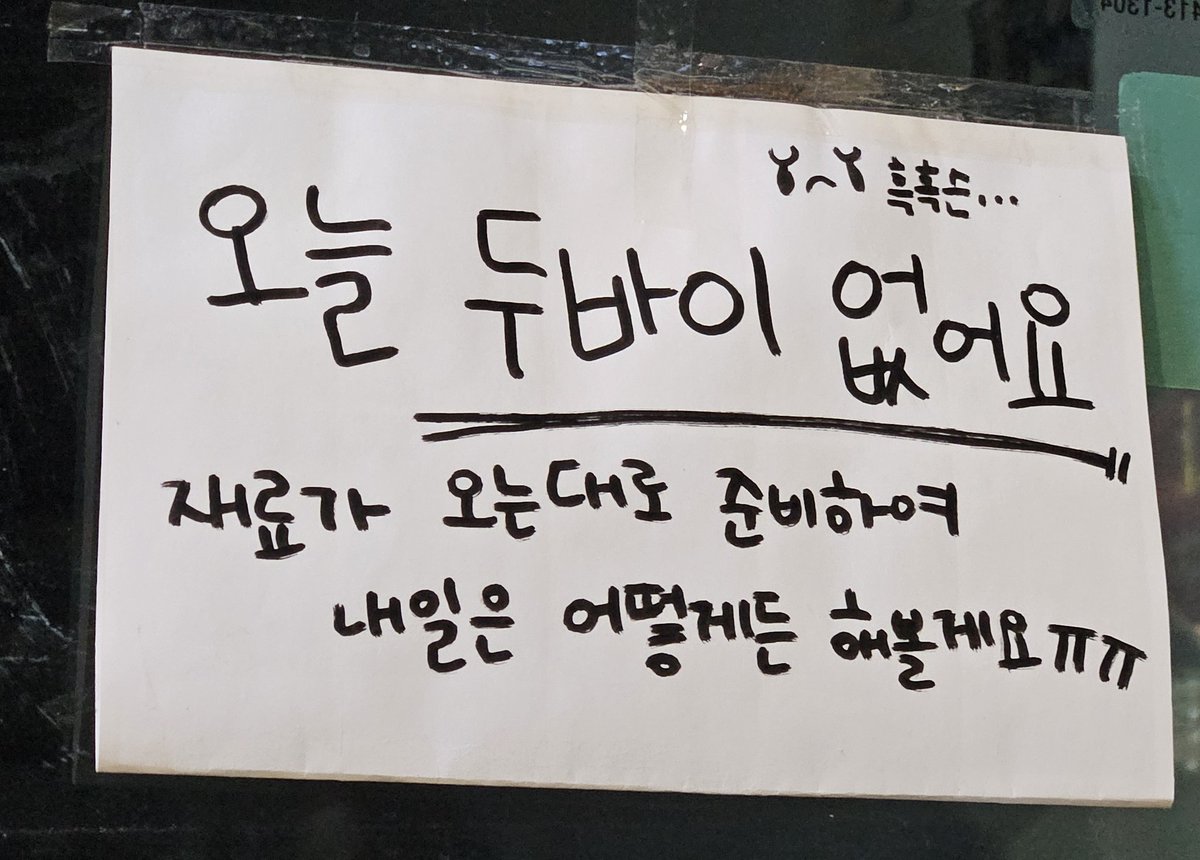 ㅠ^ㅠ 흑흑흑...
오늘 두바이 없어요
재료가 오는대로 준비하여
내일은 어떻게든 해볼게요 ㅠㅠ